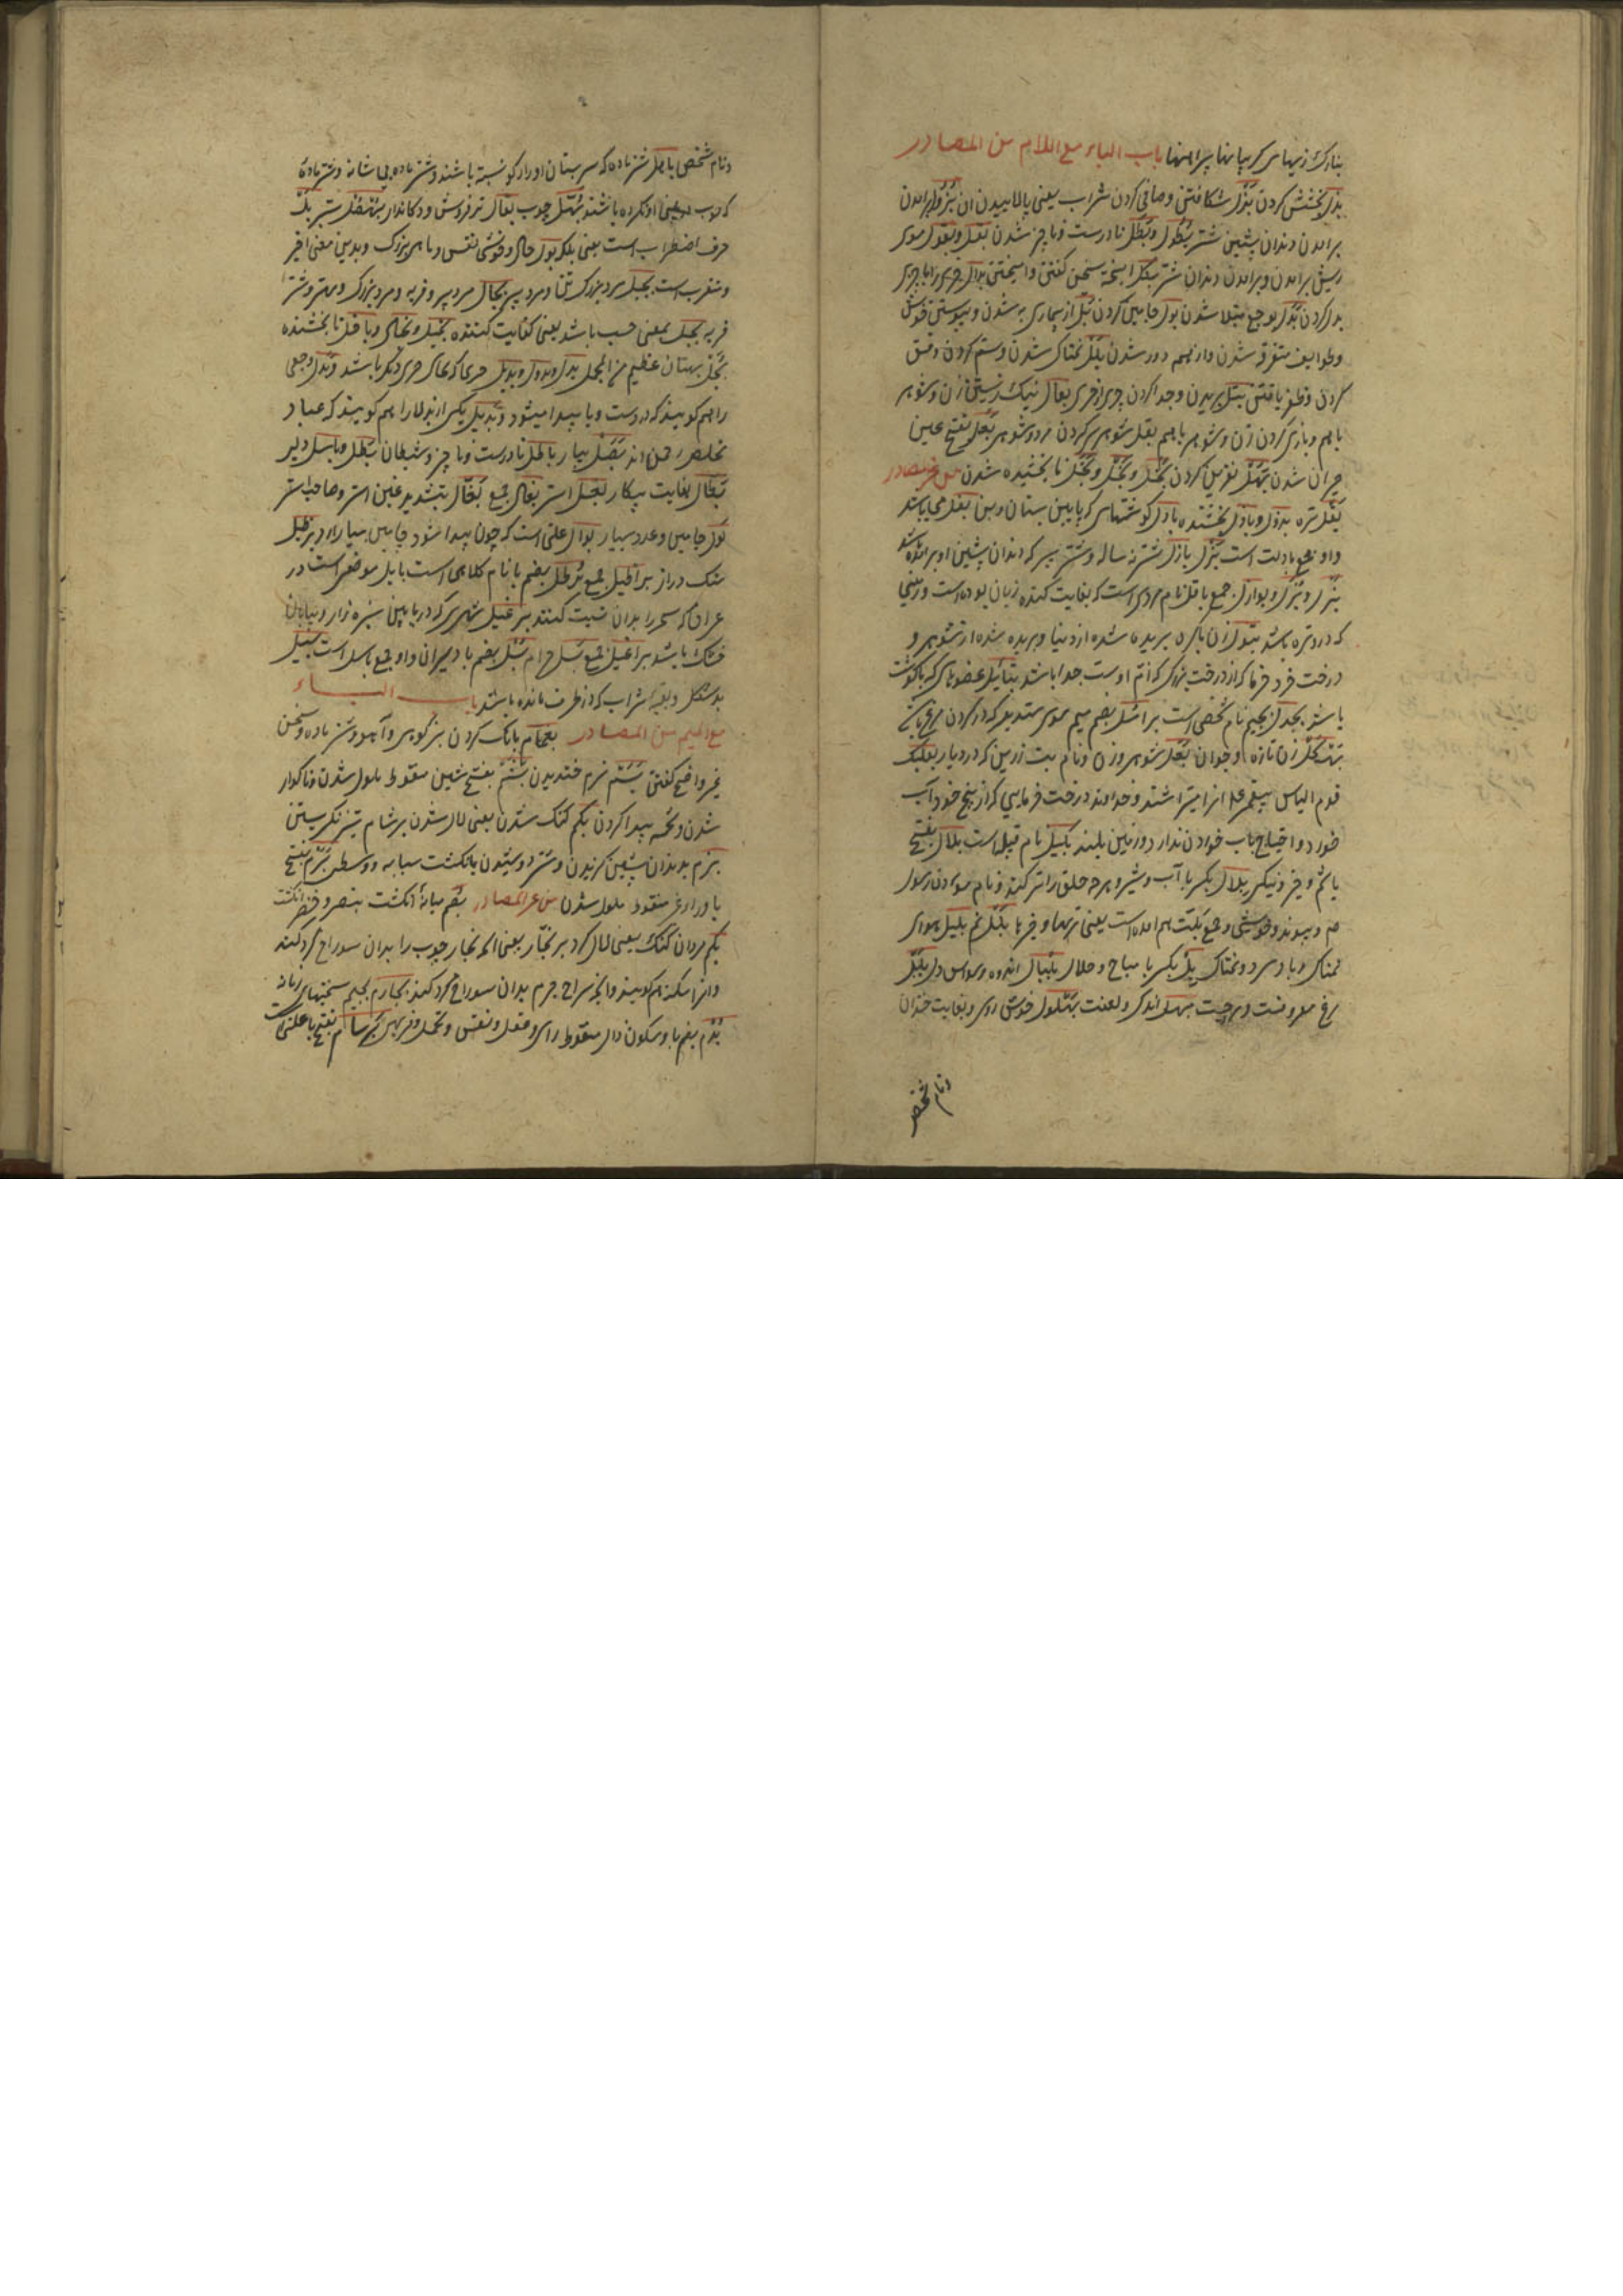 بنادک زیهای کریبانها پیراهنها باب الباء مع اللام من المصادر
بذل بخشش کردن بزل شکافتن و صافی کردن شراب یعنی پالاییدن ان بزول برامدن
برامدن دندان پشین شتر بطول و بطل نادرست و ناچیز شدن بقل و بقول موی
ریش برامدن و برامدن دندان شتر بکل امیخته سخن کفتن و امیختن بدال چیزی را با چیزی
بدل کردن بدل بوجع مبتلا شدن بول جامین کردن بل از بیماری به شدن و پیوستن خویش
و طوایف متفرقه شدن و از همه دور شدن بلل نمناک شدن و ستم کردن و فسق
کردن و ظفر یافتن بتل بریدن و جدا کردن چیزی از چیزی بعال نیک زیستن زن و شوهر
با هم و بازی کردن زن و شوهر با هم بعل شوهری کردن مرد و شوهر بعل بفتح عین
حیران شدن بهل نفرین کردن بخل و بخل و بخل نابخشیده شدن من غیر مصادر
بقل تره بذول و باذل بخشنده بادل کوشتهای که پایین پستان و بن بغل می باشد
واو جمع بادلت است بزل بازل شتر نه ساله و شتر پیر که دندان پشین او برامده باشد
بزل و بزل و بوازل جمع باقل نام مردی است که بغایت کننده زبان بوده است و زمینی
که در و تره باشد بتول زن باکره بریده شده از دنیا و بریده شده از شوهر و
درخت خرد خرما که از درخت بزرک که ام اوست جدا باشد بتایل عضوهای که با کوشت
باشد بجدل بجیم نام شخصی است برائل بضم میم موی ستدیر که در کردن مرغ باشد
بهکل زن تازه و جوان بعل شوهر و زن و نام بت زرین که در دیار بعلبک
قوم الیاس پیغمبر علا انرا میپرستیدند و خداوند درخت خرمایی که از بیخ خود آب
خورد و احتیاج بآب خوردن ندارد و زمین بلند بکیل نام قبیله است بلال بفتح
با نم و خیر و نیکی بلال بکسر با آب و شیر و هرچه حلق را تر کند و نام مؤذن رسول
م و پیوند و خویشی و جمع بلت هم امده است یعنی تریها و خیرها بلل نم بلیل هوای
نمناک و باد سرد و نمناک بل بکسر با مباح و حلال بلبال اندوه و وسواس دل بلبل
مرغ معروفست و مرد چست بهل اندک و لعنت بهلول خوش روی و بغایت خندان
ونام شخص
ونام شخص باهل شتر ماده که سر پستان او را رکو نبسته باشند و شتر ماده بی شانه و شتر ماده
که چوب در بینی او نکرده باشند بقال تره فروش و دکاندار بل
حرف اضطراب است یعنی بلکه بول حال و خوشی نفس و ماهی بزرک و بدین معنی اخیر
و معرب است بجبل مرد بزرک تن و مرد پیر بجال مرد پیر و فربه و مرد بزرک و مهتر و شتر
فربه بجل بمعنی حسب باشد یعنی کفایت کننده بخیل و بخال و باخل نابخشنده
بجل بهتان عظیم من المجمل بدل و بدل و بدیل چیزی که بجای چیزی دیکر باشد و بدل وجعی
را هم کویند که در دست و پا پیدا میشود و بدیل یکی از بدلا را هم کویند که عباد
مخلص رحمن اند بصل پیاز باطل نادرست و ناچیز و شیطان بطل و باسل دلیر
بطال بغایت بیکار بغل استر بغال جمع بغال بتشدید غین استر و صاحب استر
بول جامین و عدد بسیار بوال علتی است که چون پیدا شود جامین بسیار اید برطیل
سنک دراز براطیل جمع برطل بضم با نام کلاهی است بابل موضعی است در
عراق که سحر را بدان نسبت کنند برغیل شهری که در پایین سبزه زار و بیابان
خشک باشد براغیل جمع بسل حرام بسل بضم با دلیران واو جمع باسل است بسیل
بدشکل و بقیه شراب که در ظرف مانده باشد باب البـــاء
مع المیم من المصادر بغمام بانک کردن بز کوهی و آهو و شتر ماده و سخن
غیر واضح کفتن بسم نرم خندیدن بشم بفتح شین منقوط ملول شدن و ناکوار
شدن و تخمه پیدا کردن بکم کنک شدن یعنی لال شدن برشام تیز نکریستن
بزم بدندان پشین کزیدن و شیر دوشیدن بانکشت سبابه و وسطی برم بفتح
با و را و غیر منقوط ملول شدن من غیر المصادر بصم میانهٔ انکشت بنصر و خنصر انکشت
بکم مردان کنک یعنی لال کرد بر نجار یعنی اله نجار چوب را بدان سوراخ کرد کنند
و انرا سکنه هم کویند و انچه سراج چرم بدان سوراخ کرد کند بجارم بجیم سختیهای زمانه
بذم بضم با و سکون ذال منقوط رای و عقل و نفس و تحمل و فربهی برسام بفتح با علتی است